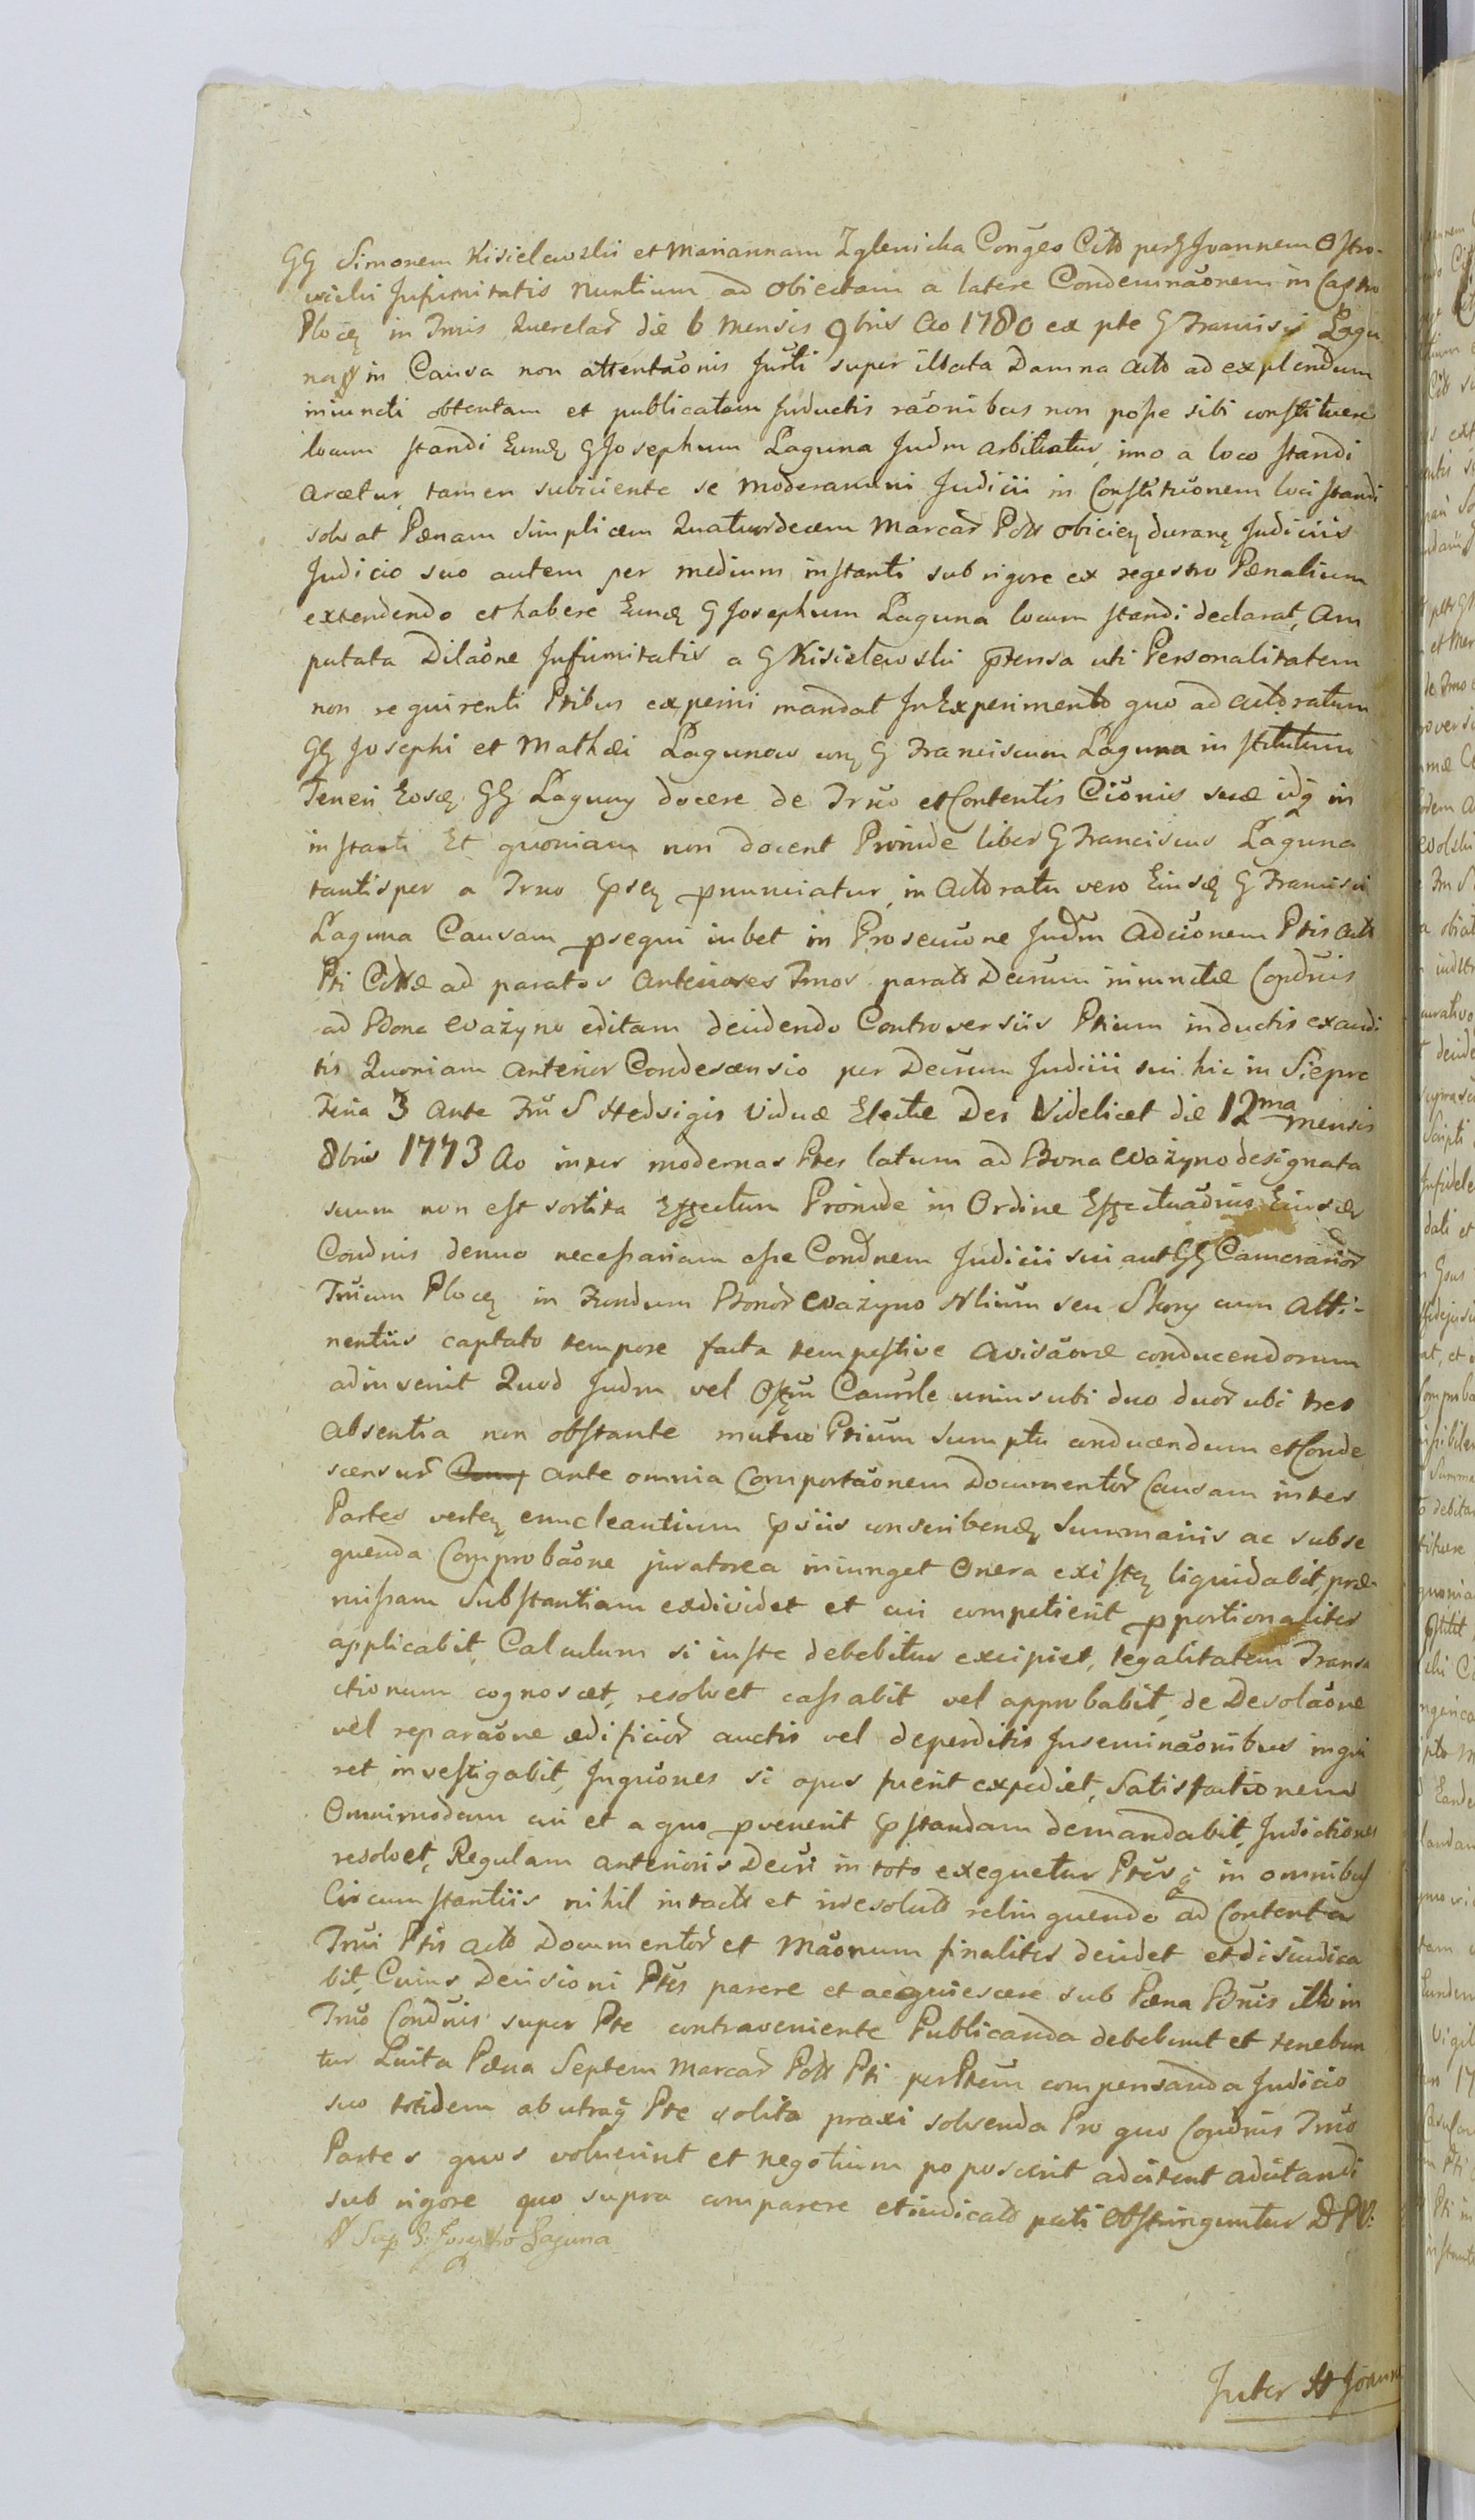 GG Simonem Kisielewski et Mariannam Zglenicka Conges Citt per G Joannem Ostro-
wski Infirmitatis Nuntium ad obiectam a latere Condemnaonem in Castro
Plocen in Tmis Querelar die 6 Mensis 9bris Ao 1780 ex pte G Francisci Lagu
na in Causa non attentaonis Jurti super illata Damna Actto ad explendum
iniuncti obtentam et publicatam Inductis raonibus non posse sibi constituere
locum standi Eund G Josephum Laguna Judm arbitratur, imo a loco standi
arcetur, tamen subiiciente se moderamini Judicii in Constituonem loci standi
solvat Pænam simplicem Quatuordecem Marcar Pols obicien duran Judiciis
Judicio suo autem per medium instanti sub rigore ex regestro Pænalium
extendendo et habere Eund G Josephum Laguna locum standi declarat, Am
putata Dilaone Infirmitatis a G Kisielewski ptensa uti Personalitatem
non requirenti Ptibus experiri mandat In Experimento quo ad Actoratum
GG Josephi et Mathæi Lagunow con G Franciscum Laguna institutum
Teneri Eosd GG Laguny docere de Trno et Contentis Cionis suæ idq in
instanti Et quoniam non docent Proinde liber G Franciscus Laguna
tantisper a Trno psen pnunciatur, in Actoratu vero Eiusd G Francisci
Laguna Causam psequi iubet in Prosecuone Judm Adcionem Ptis Actt
Pti Cittæ ad paratos anteriores Tmos parato Decrum iniunctæ Condnis
ad Bona Ważyno editam decidendo Controversiis Ptium inductis exaudi
tis Quoniam anterior Condescensio per Decrum Judicii sui hic in Sieprc
Feria 3 Ante Fm S Hedvigis Viduæ Electæ Dei Videlicet die 12ma mensis
8bris 1773 Ao inter modernas Ptes latum ad Bona Ważyno designata
suum non est sortita Effectum Proinde in Ordine Effectuaonis Eiusd
Condnis denuo necessariam esse Condnem Judicii sui aut GG Camerarior
Truum Plocen in Fundum Bonor Ważyno Nlium seu Skory cum Atti-
nentiis captato tempore facta tempestive avisaone conducendorum
adinvenit Quod Judm vel Offm Camrle unius ubi duo duor ubi tres
absentia non obstante mutuo Ptium sumptu conducendum et Conde
scensur ante omnia Comportaonem Documentor Causam inter
Partes verten enucleantium psiis conscribend Summariis ac subse
quenda Comprobaone juratorea iniunget Onera existen liquidabit, præ-
missam Substantiam exdividet et cui competierit pportionaliter
applicabit, Calculum si iuste debebitur excipiet, legalitatem Transa
ctionum cognoscet, resolvet cassabit vel approbabit, de Desolaone
vel reparaone ædificior auctis vel deperditis Inseminaonibus inqui
ret investigabit, Inquiones si opus fuerit expediet, Satisfactionem
Omnimodam cui et a quo pvenerit pstandam demandabit, Inductiones
resolvet, Regulam anterioris Decri in toto exequetur Ptesq in omnibus
Circumstantiis nihil intacti et irresoluti relinquendo ad Contenta
Trni Ptis Actt Documentor et Maonum finaliter decidet et disiudica
bit, Cuius Decisioni Ptes parere et acquiescere sub Pæna Bnis illo in
Trno Condnis super Pte contraveniente Publicanda debebunt et tenebun
tur Luita Pæna Septem Marcar Pols Pti per Ptem compensanda Judicio
suo totidem ab utraq Pte solita praxi solvenda Pro quo Condnis Trno
Partes quos voluerint et negotium poposcerit adcitent adcitandi
sub rigore quo supra comparere et iudicato pati obstringuntur DPV:
Sap G: Josepho Laguna
Inter H Joann